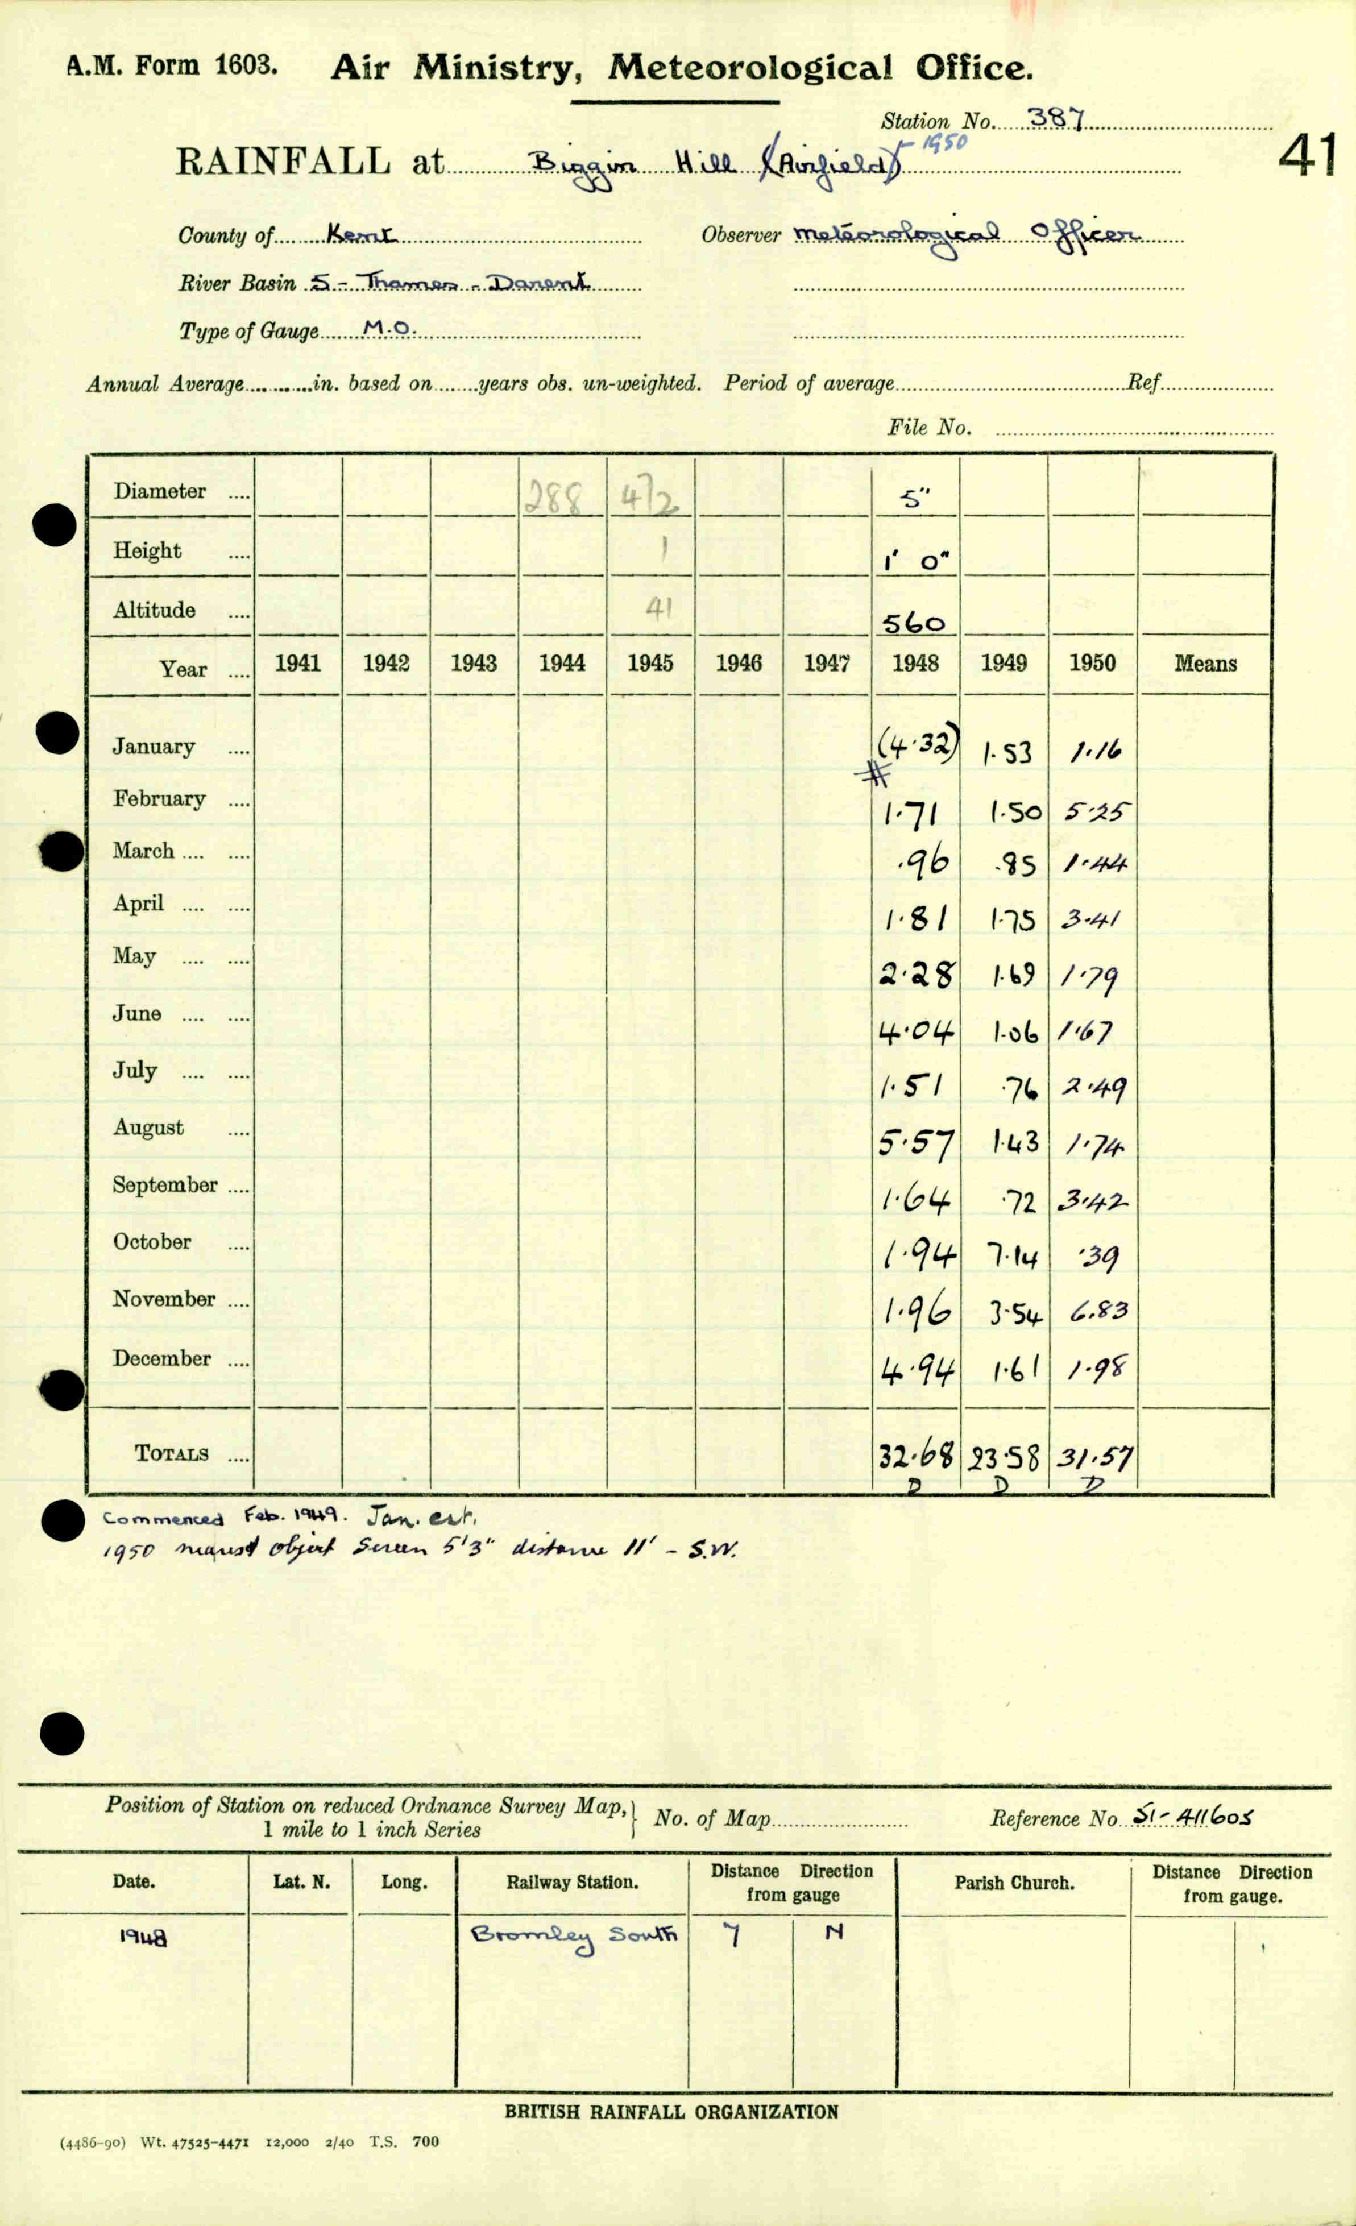 A.M. Form 1603. Air Ministry, Meteorological Office.
Station No. 387
RAINFALL at Biggin Hill (Airfield) - 1950
41
County of Kent Observer Meteorological Officer
River Basin 5 - Thames - Darent
Type of Gauge M.O.
Annual Average in. based on years obs. un-weighted. Period of average Ref.
File No.
Diameter 288 472 5"
Height 1 1' 0"
Altitude 41 560
Year 1941 1942 1943 1944 1945 1946 1947 1948 1949 1950 Means
January (4.32) 1.53 1.16
#
February 1.71 1.50 5.25
March .96 .85 1.44
April 1.81 1.75 3.41
May 2.28 1.69 1.79
June 4.04 1.06 1.67
July 1.51 .76 2.49
August 5.57 1.43 1.74
September 1.64 .72 3.42
October 1.94 7.14 .39
November 1.96 3.54 6.83
December 4.94 1.61 1.98
TOTALS 32.68 23.58 31.57
D D D
Commenced Feb. 1949. Jan. est.
1950 nearest object Screen 5'3" distance 11' - S.W.
Position of Station on reduced Ordnance Survey Map, 1 mile to 1 inch Series } No. of Map Reference No. 51-411605
Date. Lat. N. Long. Railway Station. Distance Direction from gauge Parish Church. Distance Direction from gauge.
1948 Bromley South 7 N
BRITISH RAINFALL ORGANIZATION
(4486-90) Wt. 47525-4471 12,000 2/40 T.S. 700